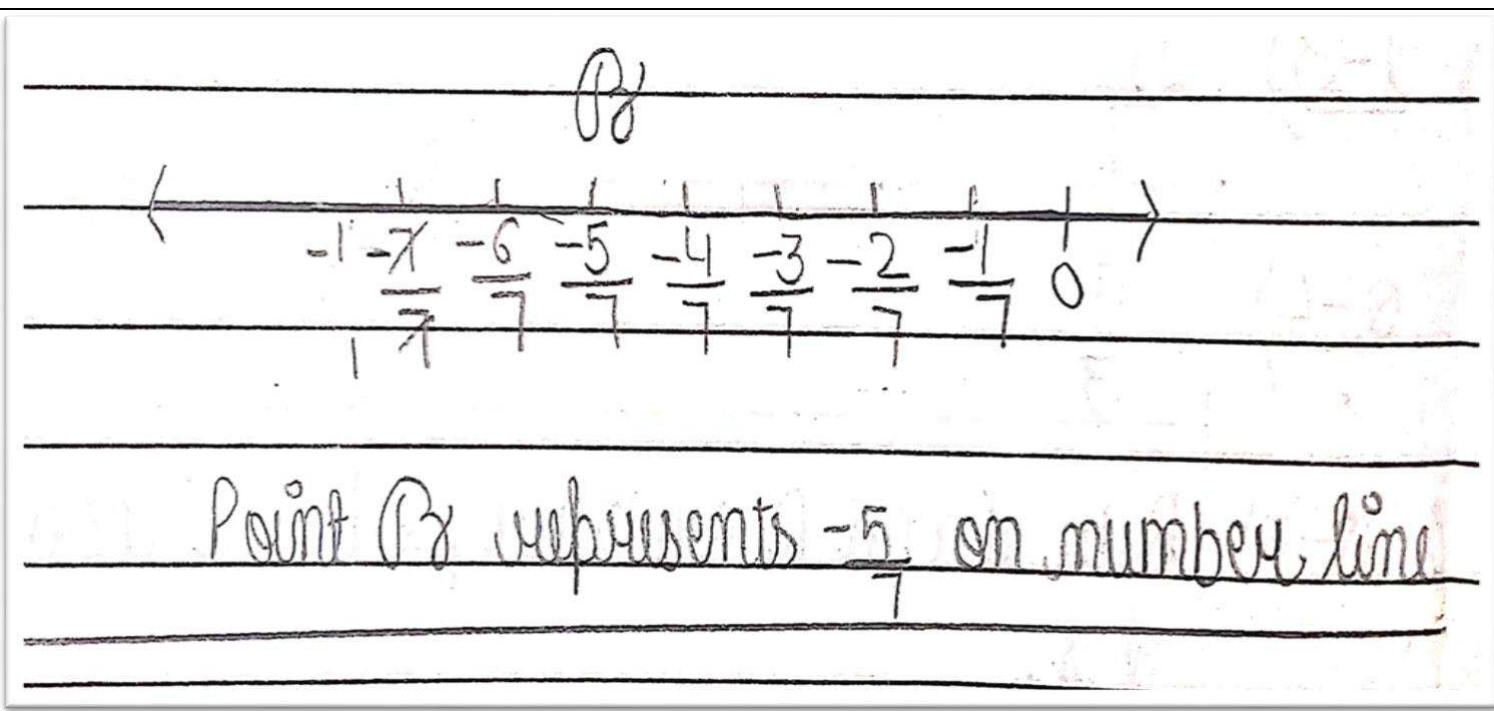 B
-1 -7/7 -6/7 -5/7 -4/7 -3/7 -2/7 -1/7 0
1
Point B represents -5/7 on number line